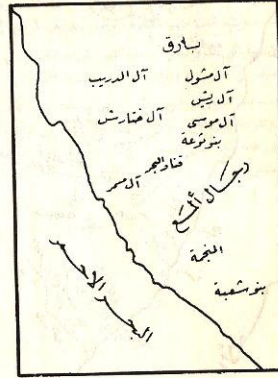 بارق
آل مشول آل الدريب
آل يتيى
آل موسى آل ختارش
بنو ثوعة
قنا والبحر
آل مسحر
رجال ألمع
المنجمة
بنو شعبة
البحر الأحمر